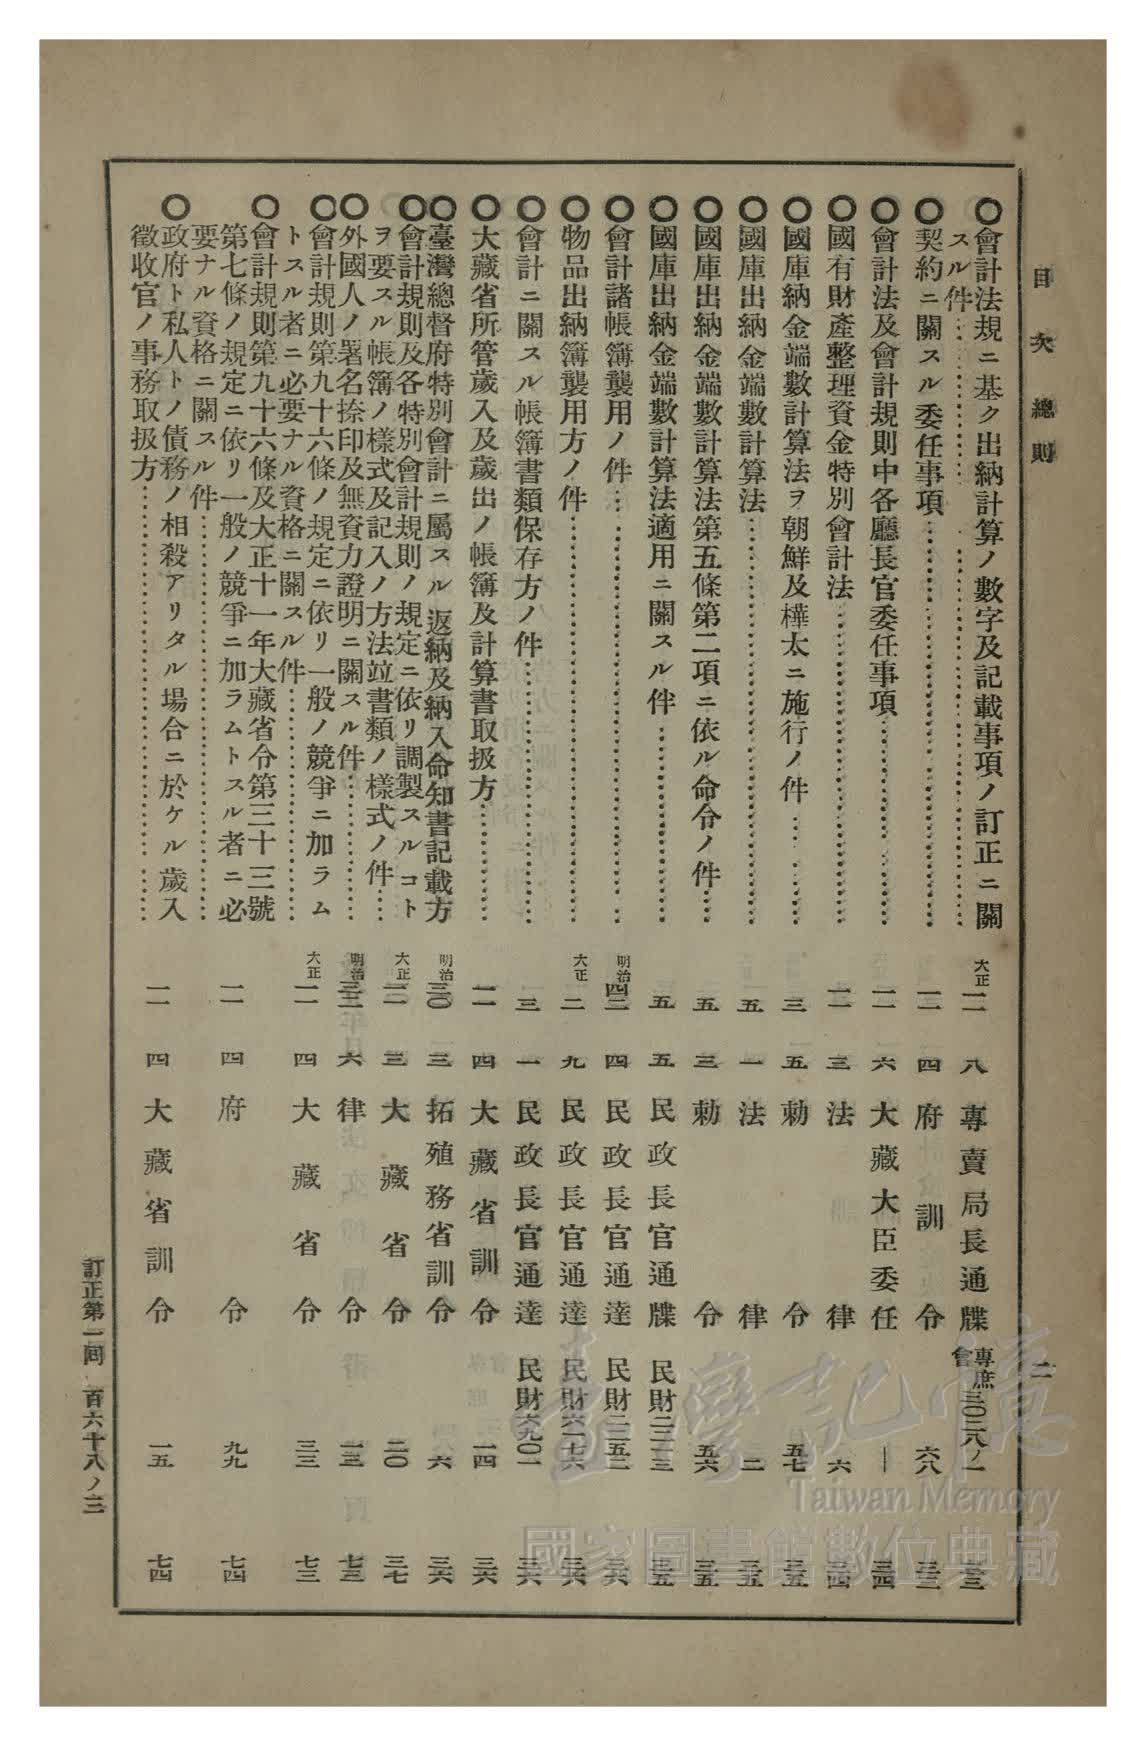 目次 總則
二
○會計法規ニ基ク出納計算ノ數字及記載事項ノ訂正ニ關
スル件………… 大正 一二 八 專賣局長通牒 專庶會三〇二八ノ一 三三
○契約ニ關スル委任事項………… 一二 四 府訓令 六八 三三
○會計法及會計規則中各廳長官委任事項………… 一一 六 大藏大臣委任 — 三四
○國有財產整理資金特別會計法………… 一一 三 法律 六 三四
○國庫納金端數計算法ヲ朝鮮及樺太ニ施行ノ件………… 三 五 勅令 五七 三五
○國庫出納金端數計算法………… 五 一 法律 二 三五
○國庫出納金端數計算法第五條第二項ニ依ル命令ノ件…… 五 三 勅令 五六 三五
○國庫出納金端數計算法適用ニ關スル件………… 五 五 民政長官通牒 民財二二三 三五
○會計諸帳簿襲用ノ件………… 明治 四二 四 民政長官通達 民財二三五二 三六
○物品出納簿襲用方ノ件………… 大正 二 九 民政長官通達 民財六一七六 三六
○會計ニ關スル帳簿書類保存方ノ件………… 三 一 民政長官通達 民財六九〇一 三六
○大藏省所管歲入及歲出ノ帳簿及計算書取扱方………… 一一 四 大藏省訓令 一四 三六
○臺灣總督府特別會計ニ屬スル返納及納入命知書記載方 明治 三〇 三 拓殖務省訓令 六 三六
○會計規則及各特別會計規則ノ規定ニ依リ調製スルコト
ヲ要スル帳簿ノ樣式及記入ノ方法竝書類ノ樣式ノ件…… 大正 一一 三 大藏省令 二〇 三七
○外國人ノ署名捺印及無資力證明ニ關スル件………… 明治 三二 六 律令 一三 七三
○會計規則第九十六條ノ規定ニ依リ一般ノ競爭ニ加ラム
トスル者ニ必要ナル資格ニ關スル件………… 大正 一一 四 大藏省令 三三 七三
○會計規則第九十六條及大正十一年大藏省令第三十三號
第七條ノ規定ニ依リ一般ノ競爭ニ加ラムトスル者ニ必
要ナル資格ニ關スル件………… 一一 四 府令 九九 七四
○政府ト私人トノ債務ノ相殺アリタル場合ニ於ケル歲入
徵收官ノ事務取扱方………… 一一 四 大藏省訓令 一五 七四
訂正第一回 百六十八ノ三
臺灣記憶
Taiwan Memory
國家圖書館數位典藏